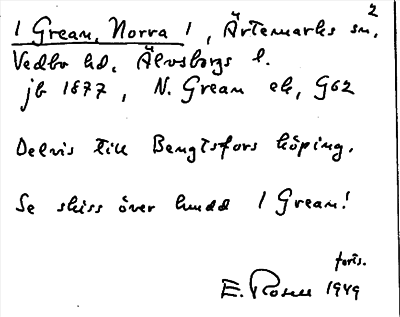 2
1 Grean, Norra 1, Ärtemarks sn,
Vedbo hd. Älvsborgs l.
jb 1877, N. Grean ek, G62
Delvis till Bengtsfors köping.
Se skiss över hudd 1 Grean!
forts.
E. Rosell 1949